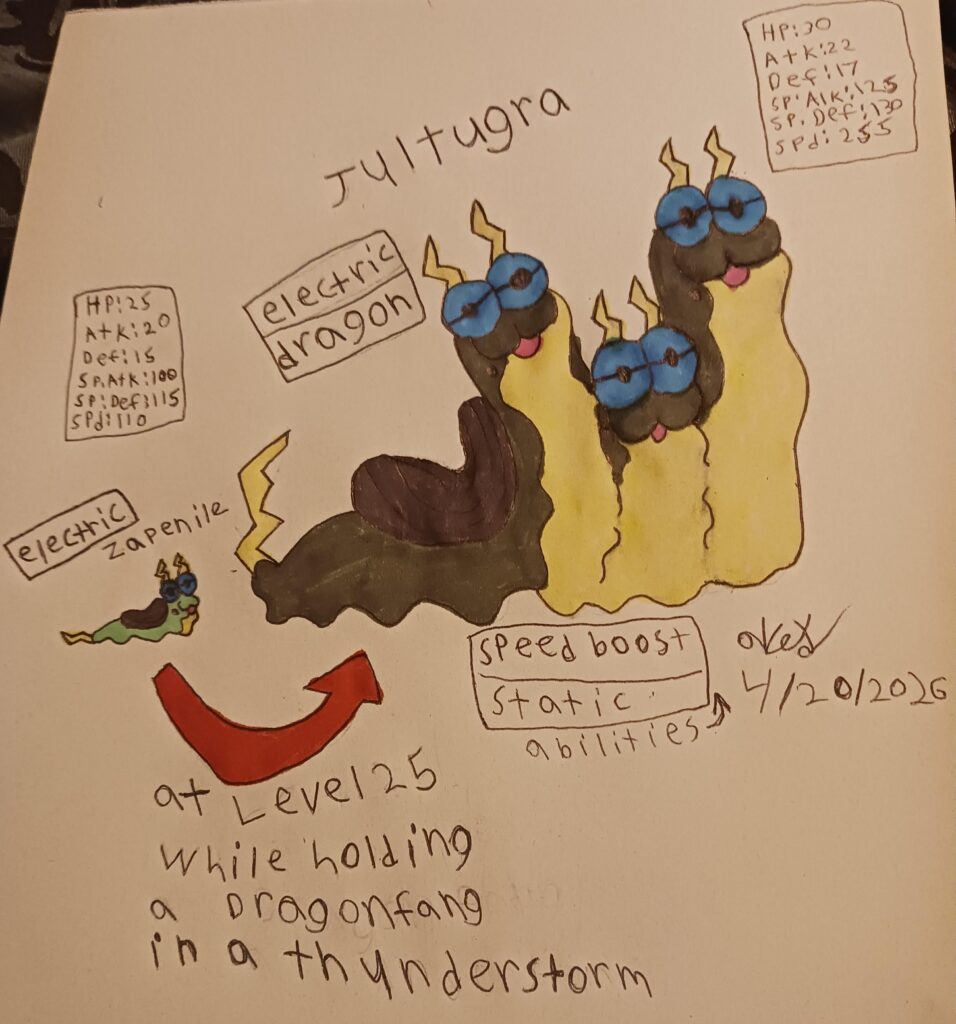 HP:30
Atk:22
Def:17
SP.Atk:125
SP.Def:130
SPd:255
Jultugra
electric
dragon
HP:25
Atk:20
Def:15
SP.Atk:100
SP.Def:115
SPd:110
electric
zapenile
speed boost
static
abilities
4/20/2026
at Level 25
While holding
a Dragonfang
in a thunderstorm